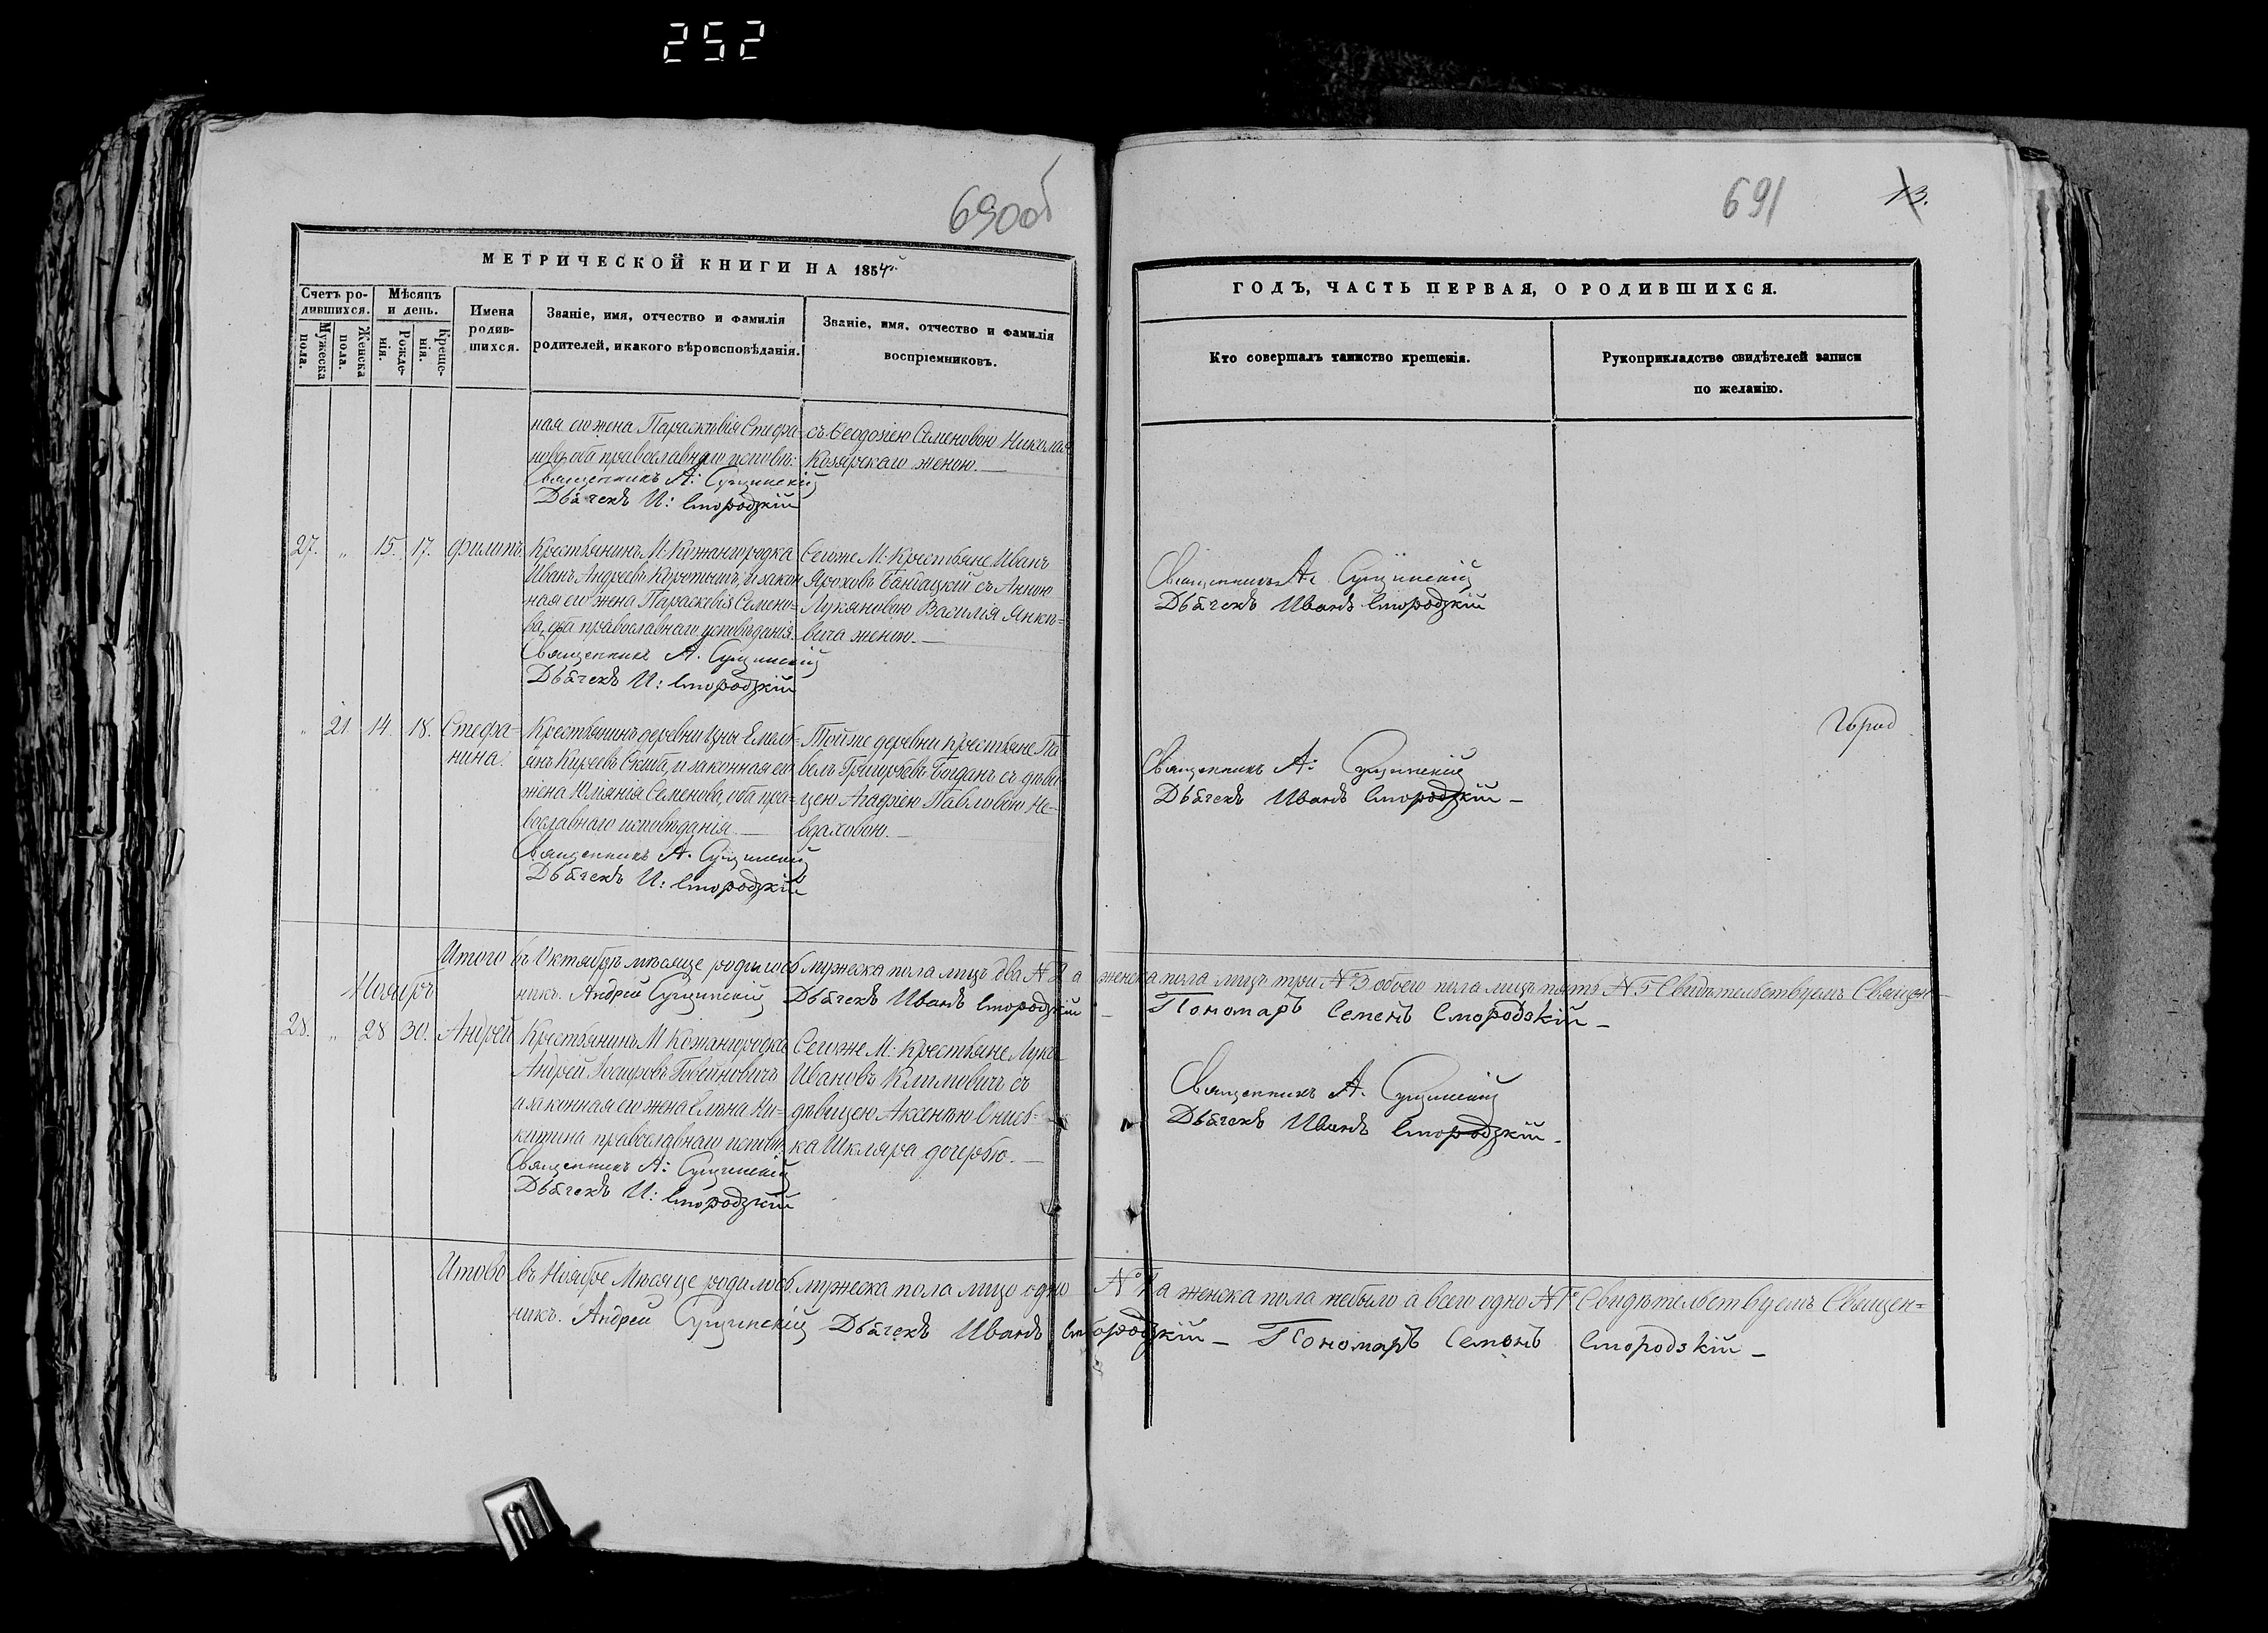 252
690об
МЕТРИЧЕСКОЙ КНИГИ НА 1854й
Счетъ ро-
дившихся.
Мѣсяцъ
и день.
Мужеска
пола.
Женска
пола.
Рожде-
нія.
Креще-
нія.
Имена
родив-
шихся.
Званіе, имя, отчество и фамилія
родителей, и какого вѣроисповѣданія.
Званіе, имя, отчество и фамилія
воспріемниковъ.
ная его жена Параскивія Стефа-
нова, оба православнаго исповѣ:
Священникъ А: Сущинскій
Дьячекъ И: Смородзкій
съ Ѳеодозіею Семеновою Николая
Козярскаго женою.—
27. „ 15. 17. Филипъ.
Крестьянинъ М: Кожангородка
Иванъ Андреевъ Коротышъ, и закон
ная его жена Параскевія Семено-
ва, оба православнаго исповѣданія.
Священникъ А. Сущинскій
Дьячекъ И: Смородзкій
Сегоже М: Крестьяне Иванъ
Яроховъ Бандацкій съ Анною
Лукяновою Василія Янки=
вича женою.—
„ 21 14. 18. Стефа-
нина.
Крестьянинъ деревни Цны Емель-
янъ Киреевъ Скиба, и законная его
жена Юліянія Семенова, оба пра-
вославнаго исповѣданія.—
Священникъ А. Сущинскій
Дьячекъ И: Смородзкій
Тойже деревни крестьяне Па
велъ Григорьевъ Богданъ съ дѣви
цею Агафіею Павловою Не-
вдаховою.—
Итого въ Октябрѣ мѣсяце родилось мужеска пола лицъ два №2 а
никъ. Андрей Сущинскій Дьячекъ Иванъ Смородзкій
Ноябрь
28. „ 28 30. Андрей
Крестьянинъ М Кожангородка
Андрей
и законная его жена Елена Ни-
китина православнаго исповѣ.
Священникъ А: Сущинскій
Дьячекъ И: Смородзкій
Сегоже М: Крестьяне Лука
Ивановъ Климовичъ съ
дѣвицею Аксеньею Онись-
ка Шкляра дочерью.—
Итого въ Ноябре Мѣсяце родилось мужеска пола лице одно
никъ. Андрей Сущинскій Дьячекъ Иванъ
691
13.
ГОДЪ, ЧАСТЬ ПЕРВАЯ, О РОДИВШИХСЯ.
Кто совершалъ таинство крещенія.
Рукоприкладство свидѣтелей записи
по желанію.
Священникъ А. Сущинскій
Дьячекъ Иванъ Смородзкій
Священникъ А: Сущинскій
Дьячекъ Иванъ Смородзкій —
женска пола лицъ три №3 обоего пола лицъ пять №5 Свидѣтельствуемъ Священ-
— Пономаръ Семенъ Смородскій —
Священникъ А. Сущинскій
Дьячекъ Иванъ Смородзкій.
№1 а женска пола небыло а всего одно №1 Свидѣтельствуемъ Священ=
Смородзкій — Пономаръ Семенъ Смородскій —